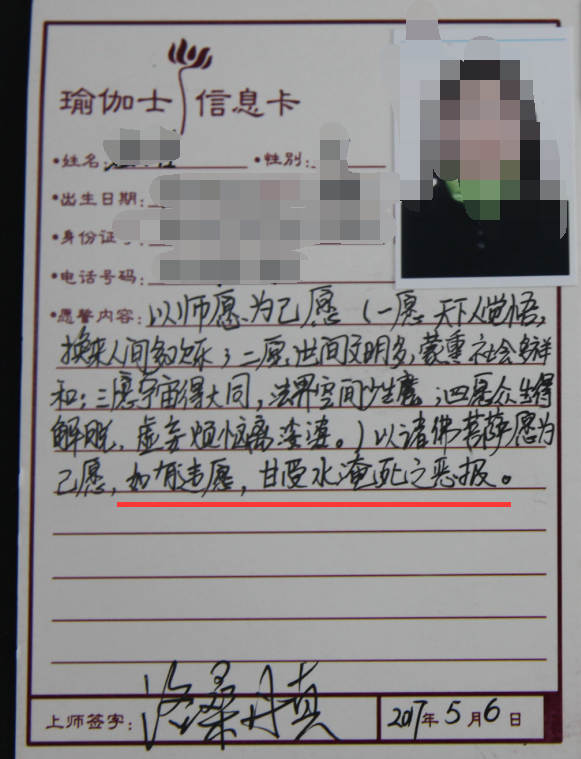 瑜伽士 信息卡
•姓名:
•性别:
•出生日期:
•身份证
•电话号码:
•愿誓内容: 以师愿为己愿（一愿天下人觉悟,
换来人间多欢乐；二愿世间文明多，蒙熏社会多祥
和；三愿宇宙得大同，法界空间少生魔；四愿众生得
解脱，虚妄烦恼离婆婆。）以诸佛菩萨愿为
己愿，如有违愿，甘受水淹死之恶报。
上师签字: 洛桑丹真
2017年5月6日